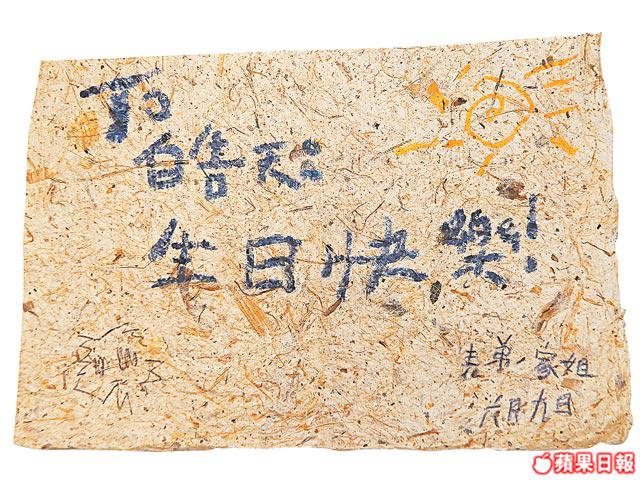 To
皓天:
生日快樂!
表弟、家姐
六月九日
蘋果日報